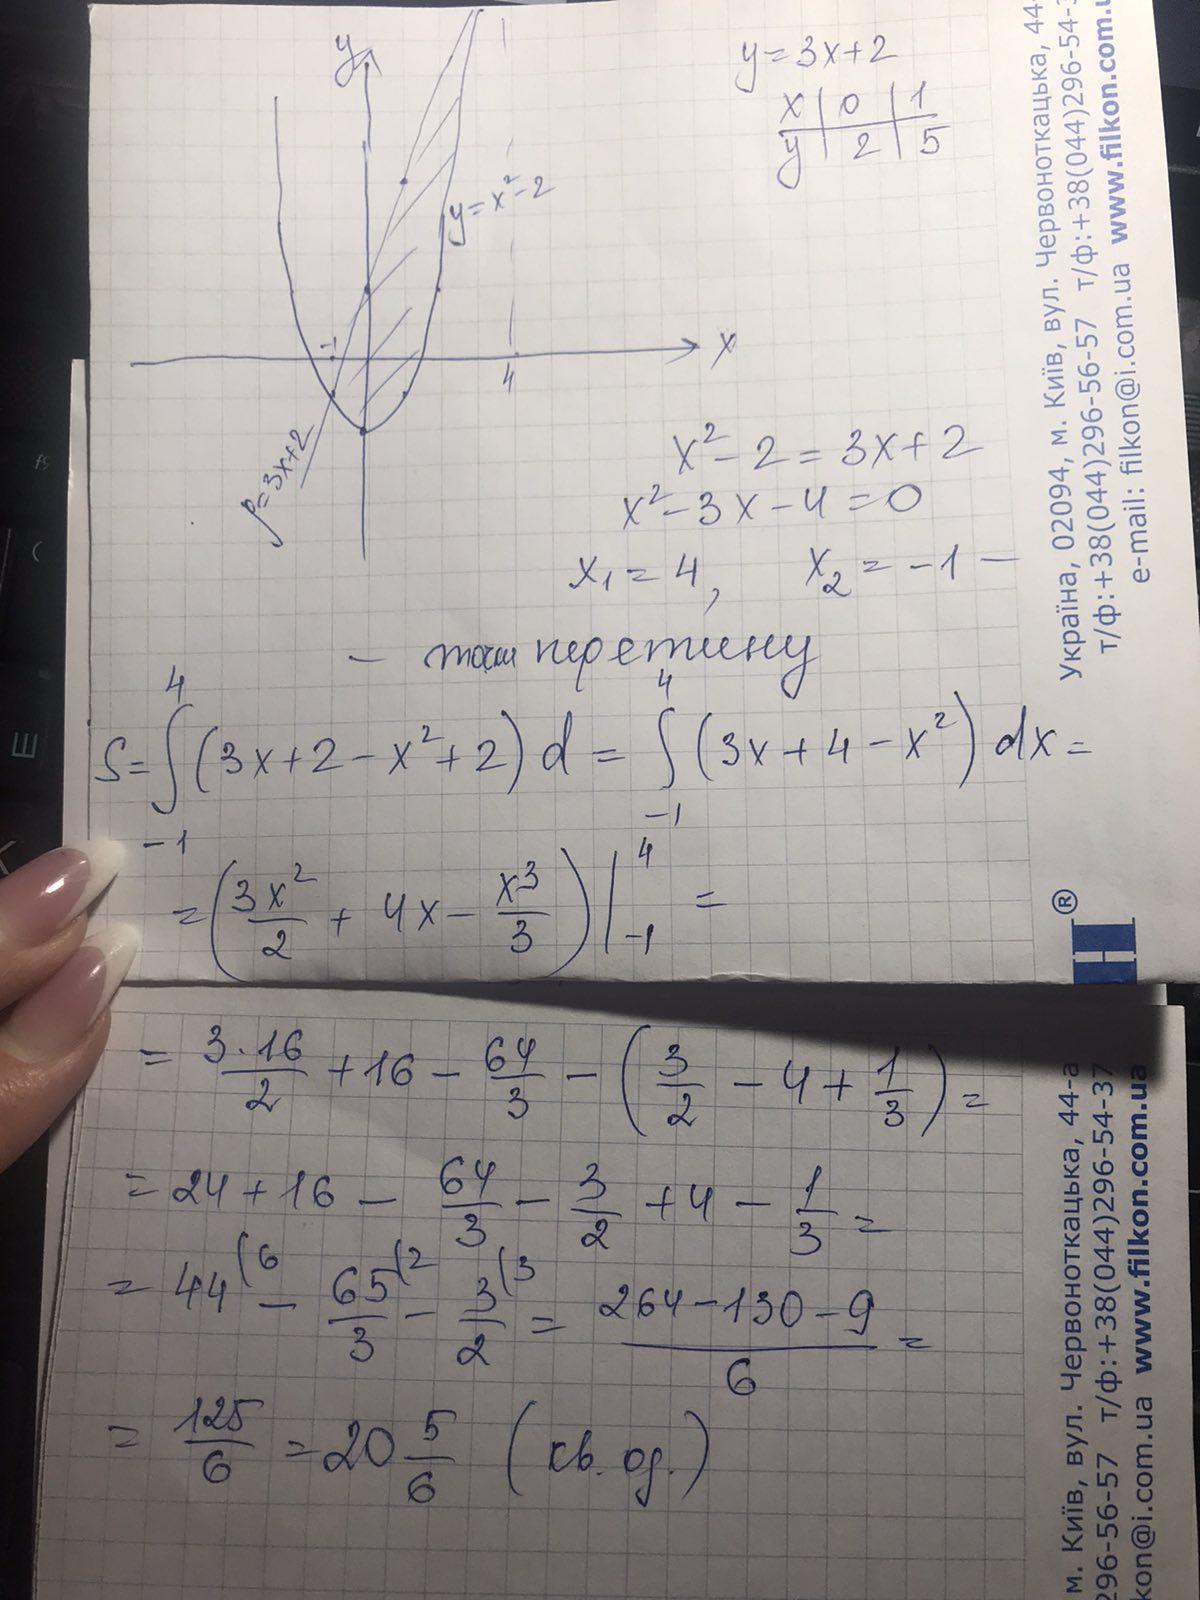 y
y = 3x + 2
x | 0 | 1
y | 2 | 5
y = x² - 2
-1
4
x
y = 3x+2
x² - 2 = 3x + 2
x² - 3x - 4 = 0
x₁ = 4, x₂ = -1 -
- точки перетину
S = ∫₋₁⁴ (3x + 2 - x² + 2) d = ∫₋₁⁴ (3x + 4 - x²) dx =
= (3x²/2 + 4x - x³/3) |₋₁⁴ =
= 3·16/2 + 16 - 64/3 - (3/2 - 4 + 1/3) =
= 24 + 16 - 64/3 - 3/2 + 4 - 1/3 =
= 44⁽⁶ - 65/3⁽² - 3/2⁽³ = (264 - 130 - 9)/6 =
= 125/6 = 20 5/6 (кв. од.)
Україна, 02094, м. Київ, вул. Червоноткацька, 44-
т/ф:+38(044)296-56-57 т/ф:+38(044)296-54-3
e-mail: filkon@i.com.ua www.filkon.com.u
Н®
м. Київ, вул. Червоноткацька, 44-а
296-56-57 т/ф:+38(044)296-54-37
kon@i.com.ua www.filkon.com.ua
f5
Е
К